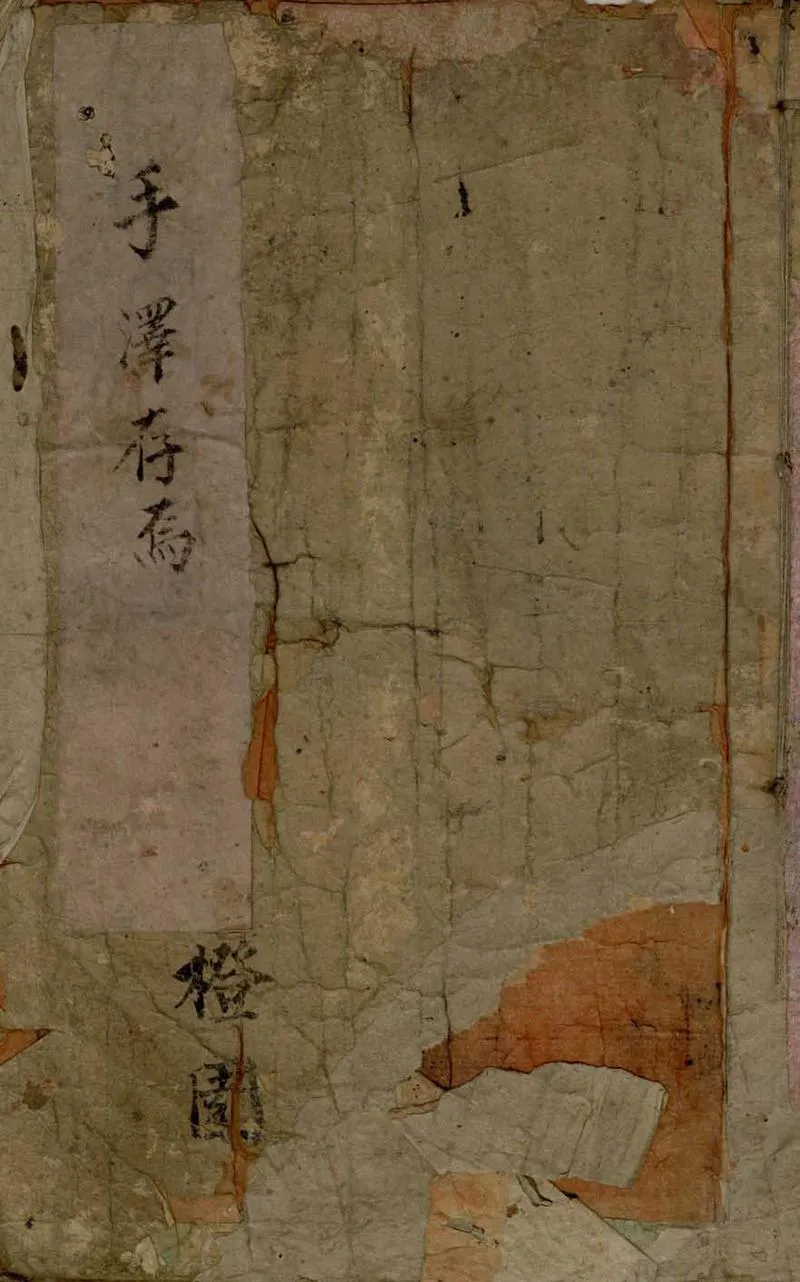 手澤存焉
橙園